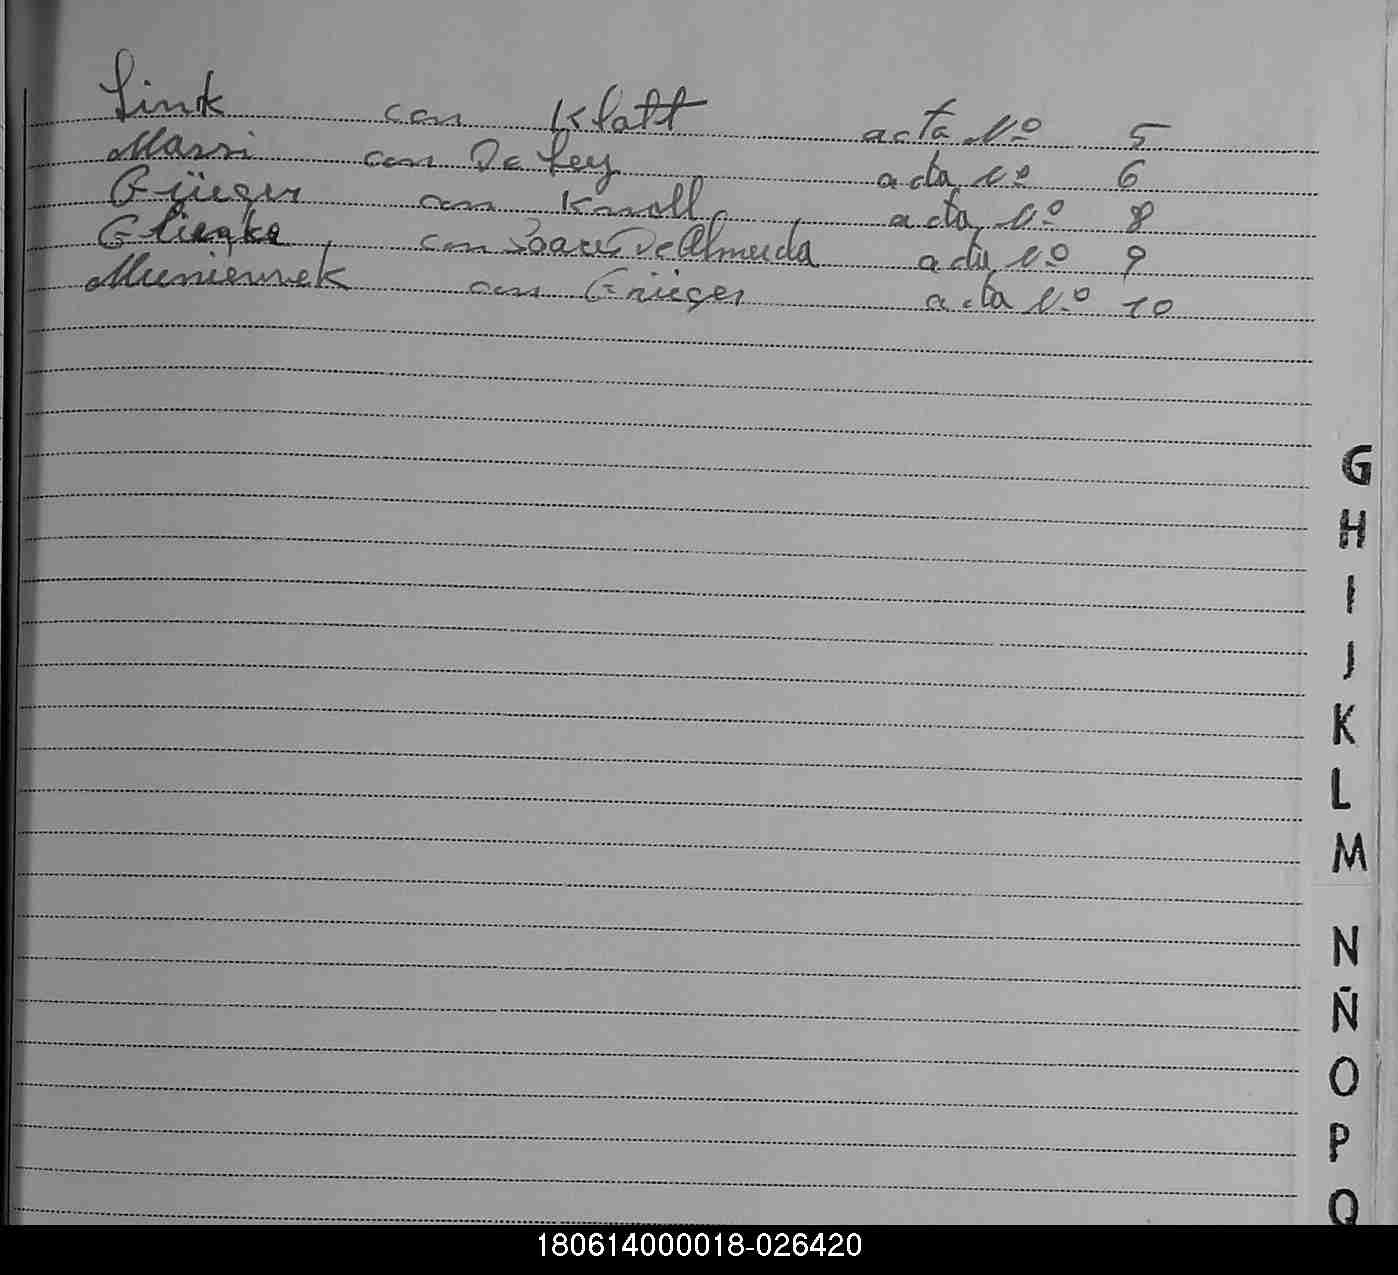 Link con Klatt acta Nº 5
Massi con De Ley acta Nº 6
Grüger con Knoll acta Nº 8
Glienke con Soares De Almeida acta Nº 9
con Grüger acta Nº 10
G
H
I
J
K
L
M
N
Ñ
O
P
Q
180614000018-026420